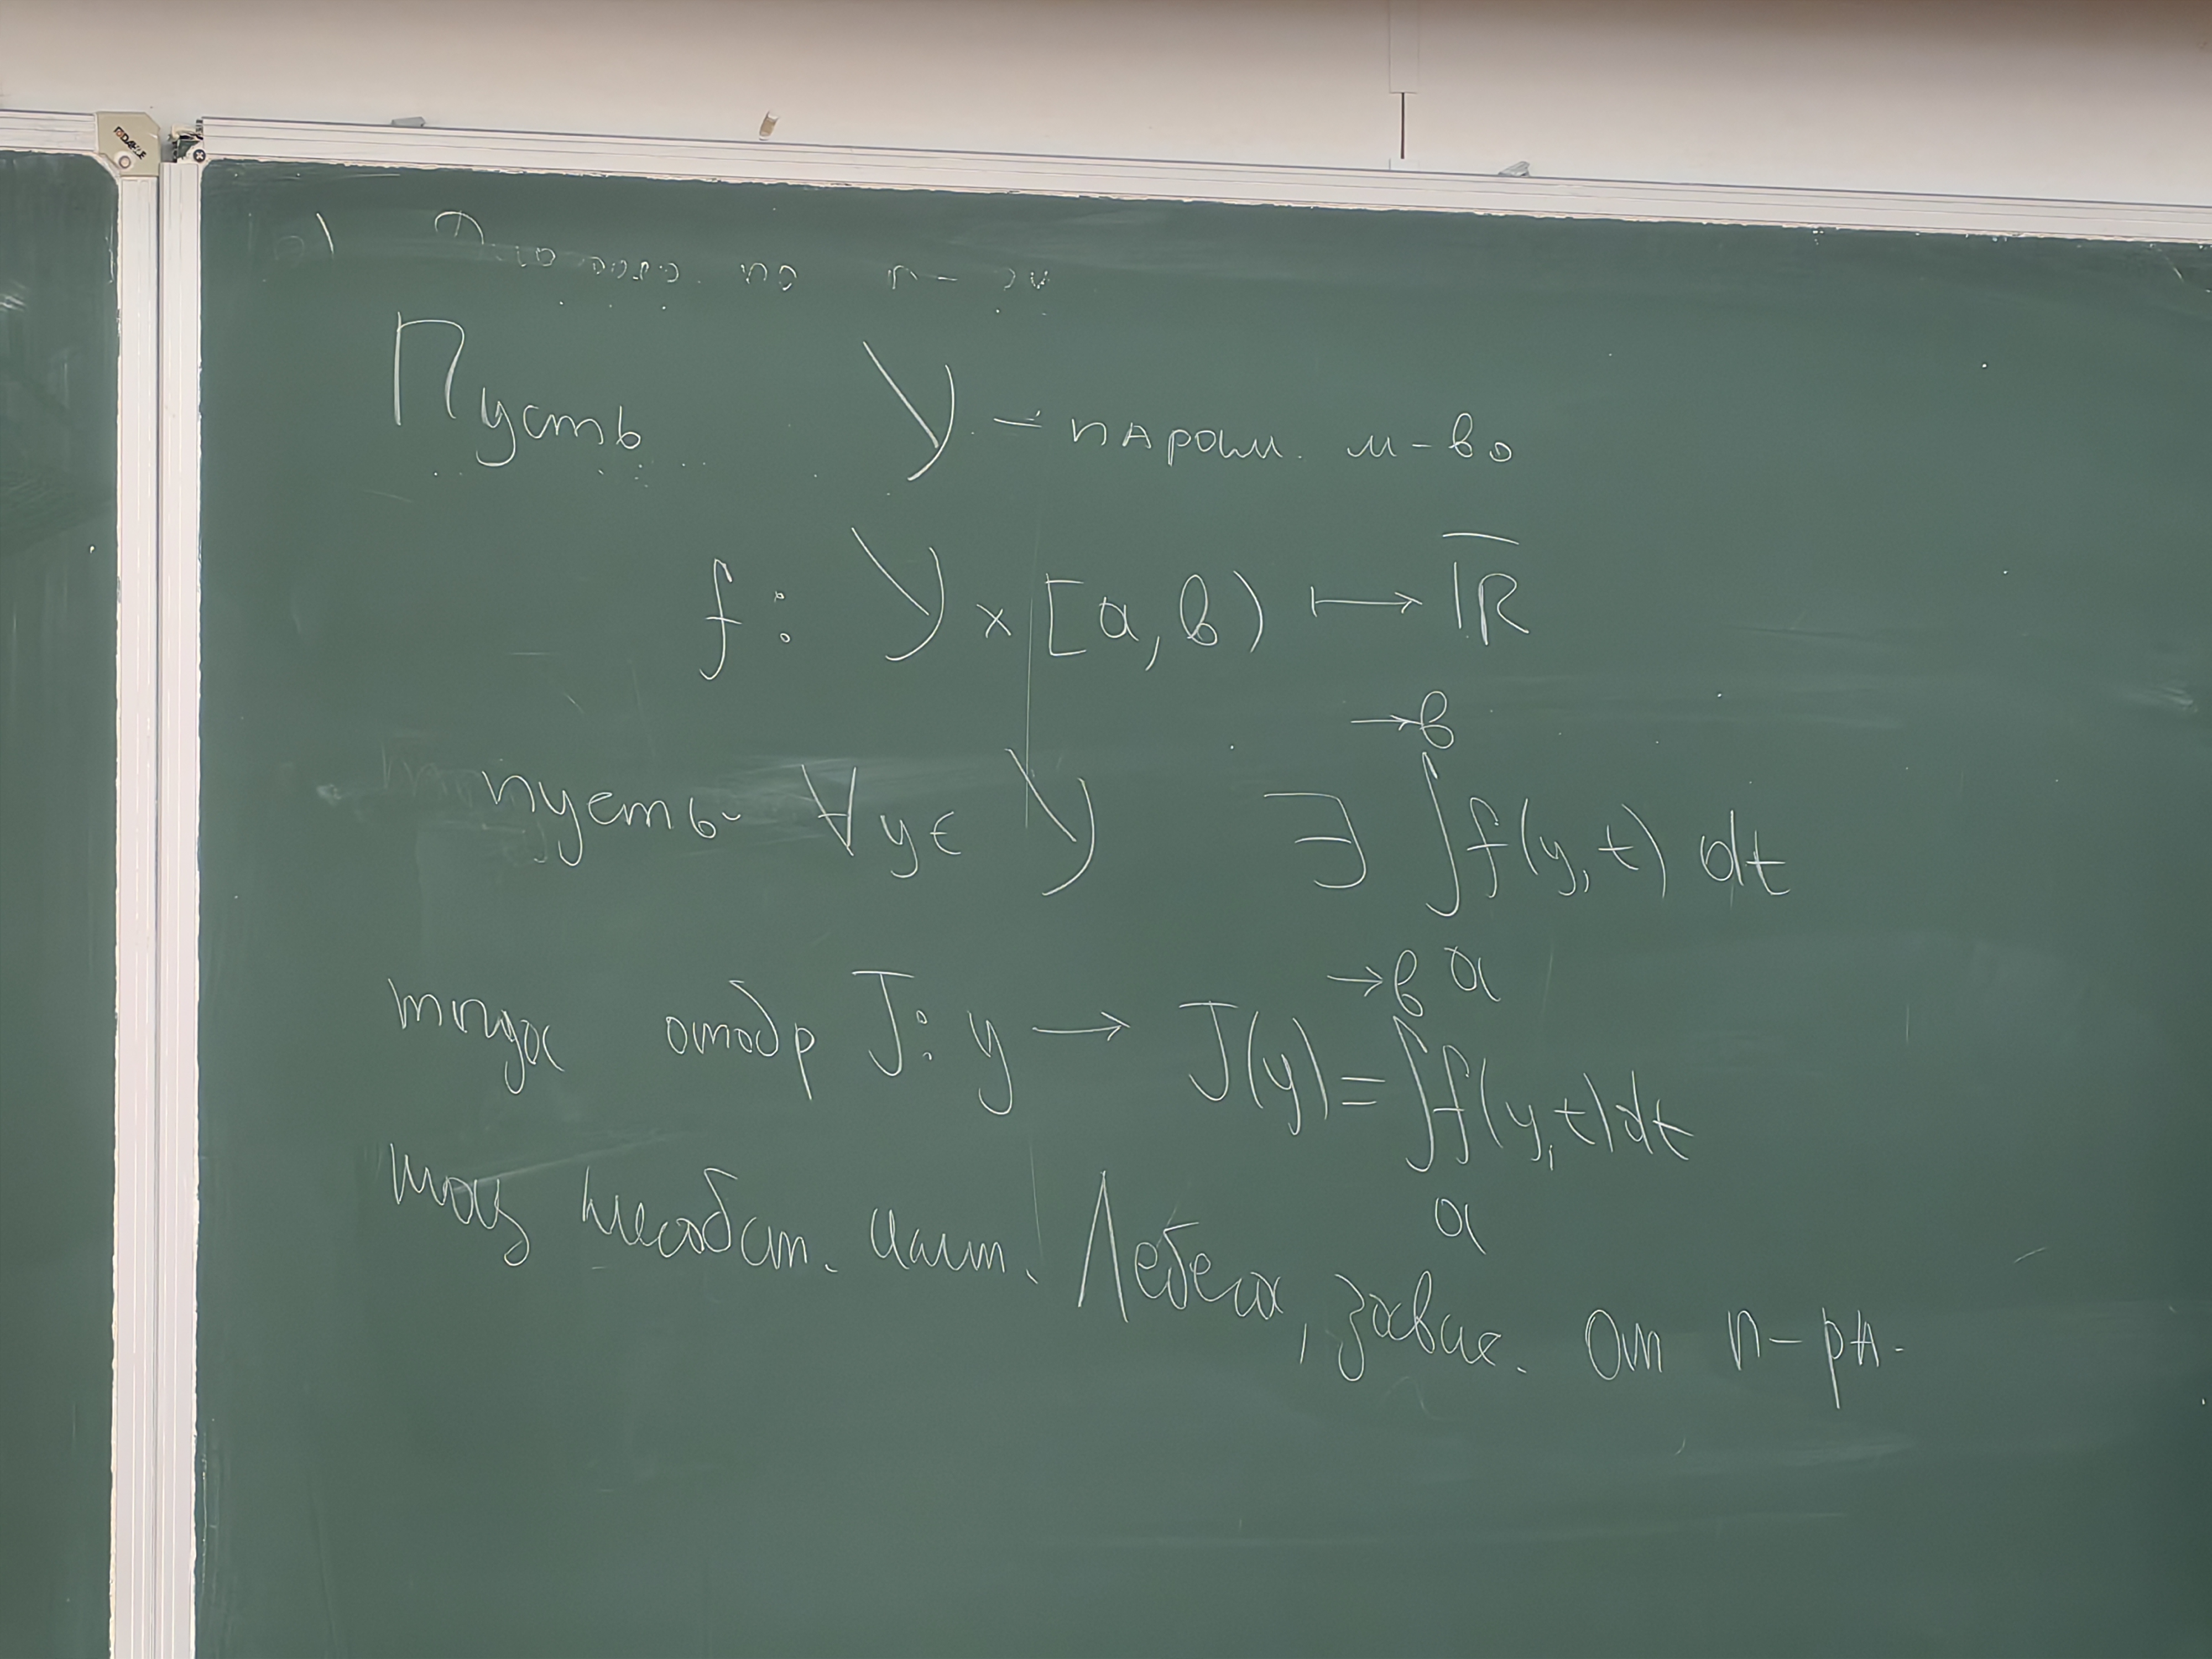 Пусть У – парам. м-во
f: У × [a, b) ⟼ R̅
пусть ∀ y ∈ У ∃ ∫ₐ^{→b} f(y, t) dt
тогда отобр J: y → J(y) = ∫ₐ^{→b} f(y, t) dt
наз несобст. инт. Лебега, завис. от п-ра.